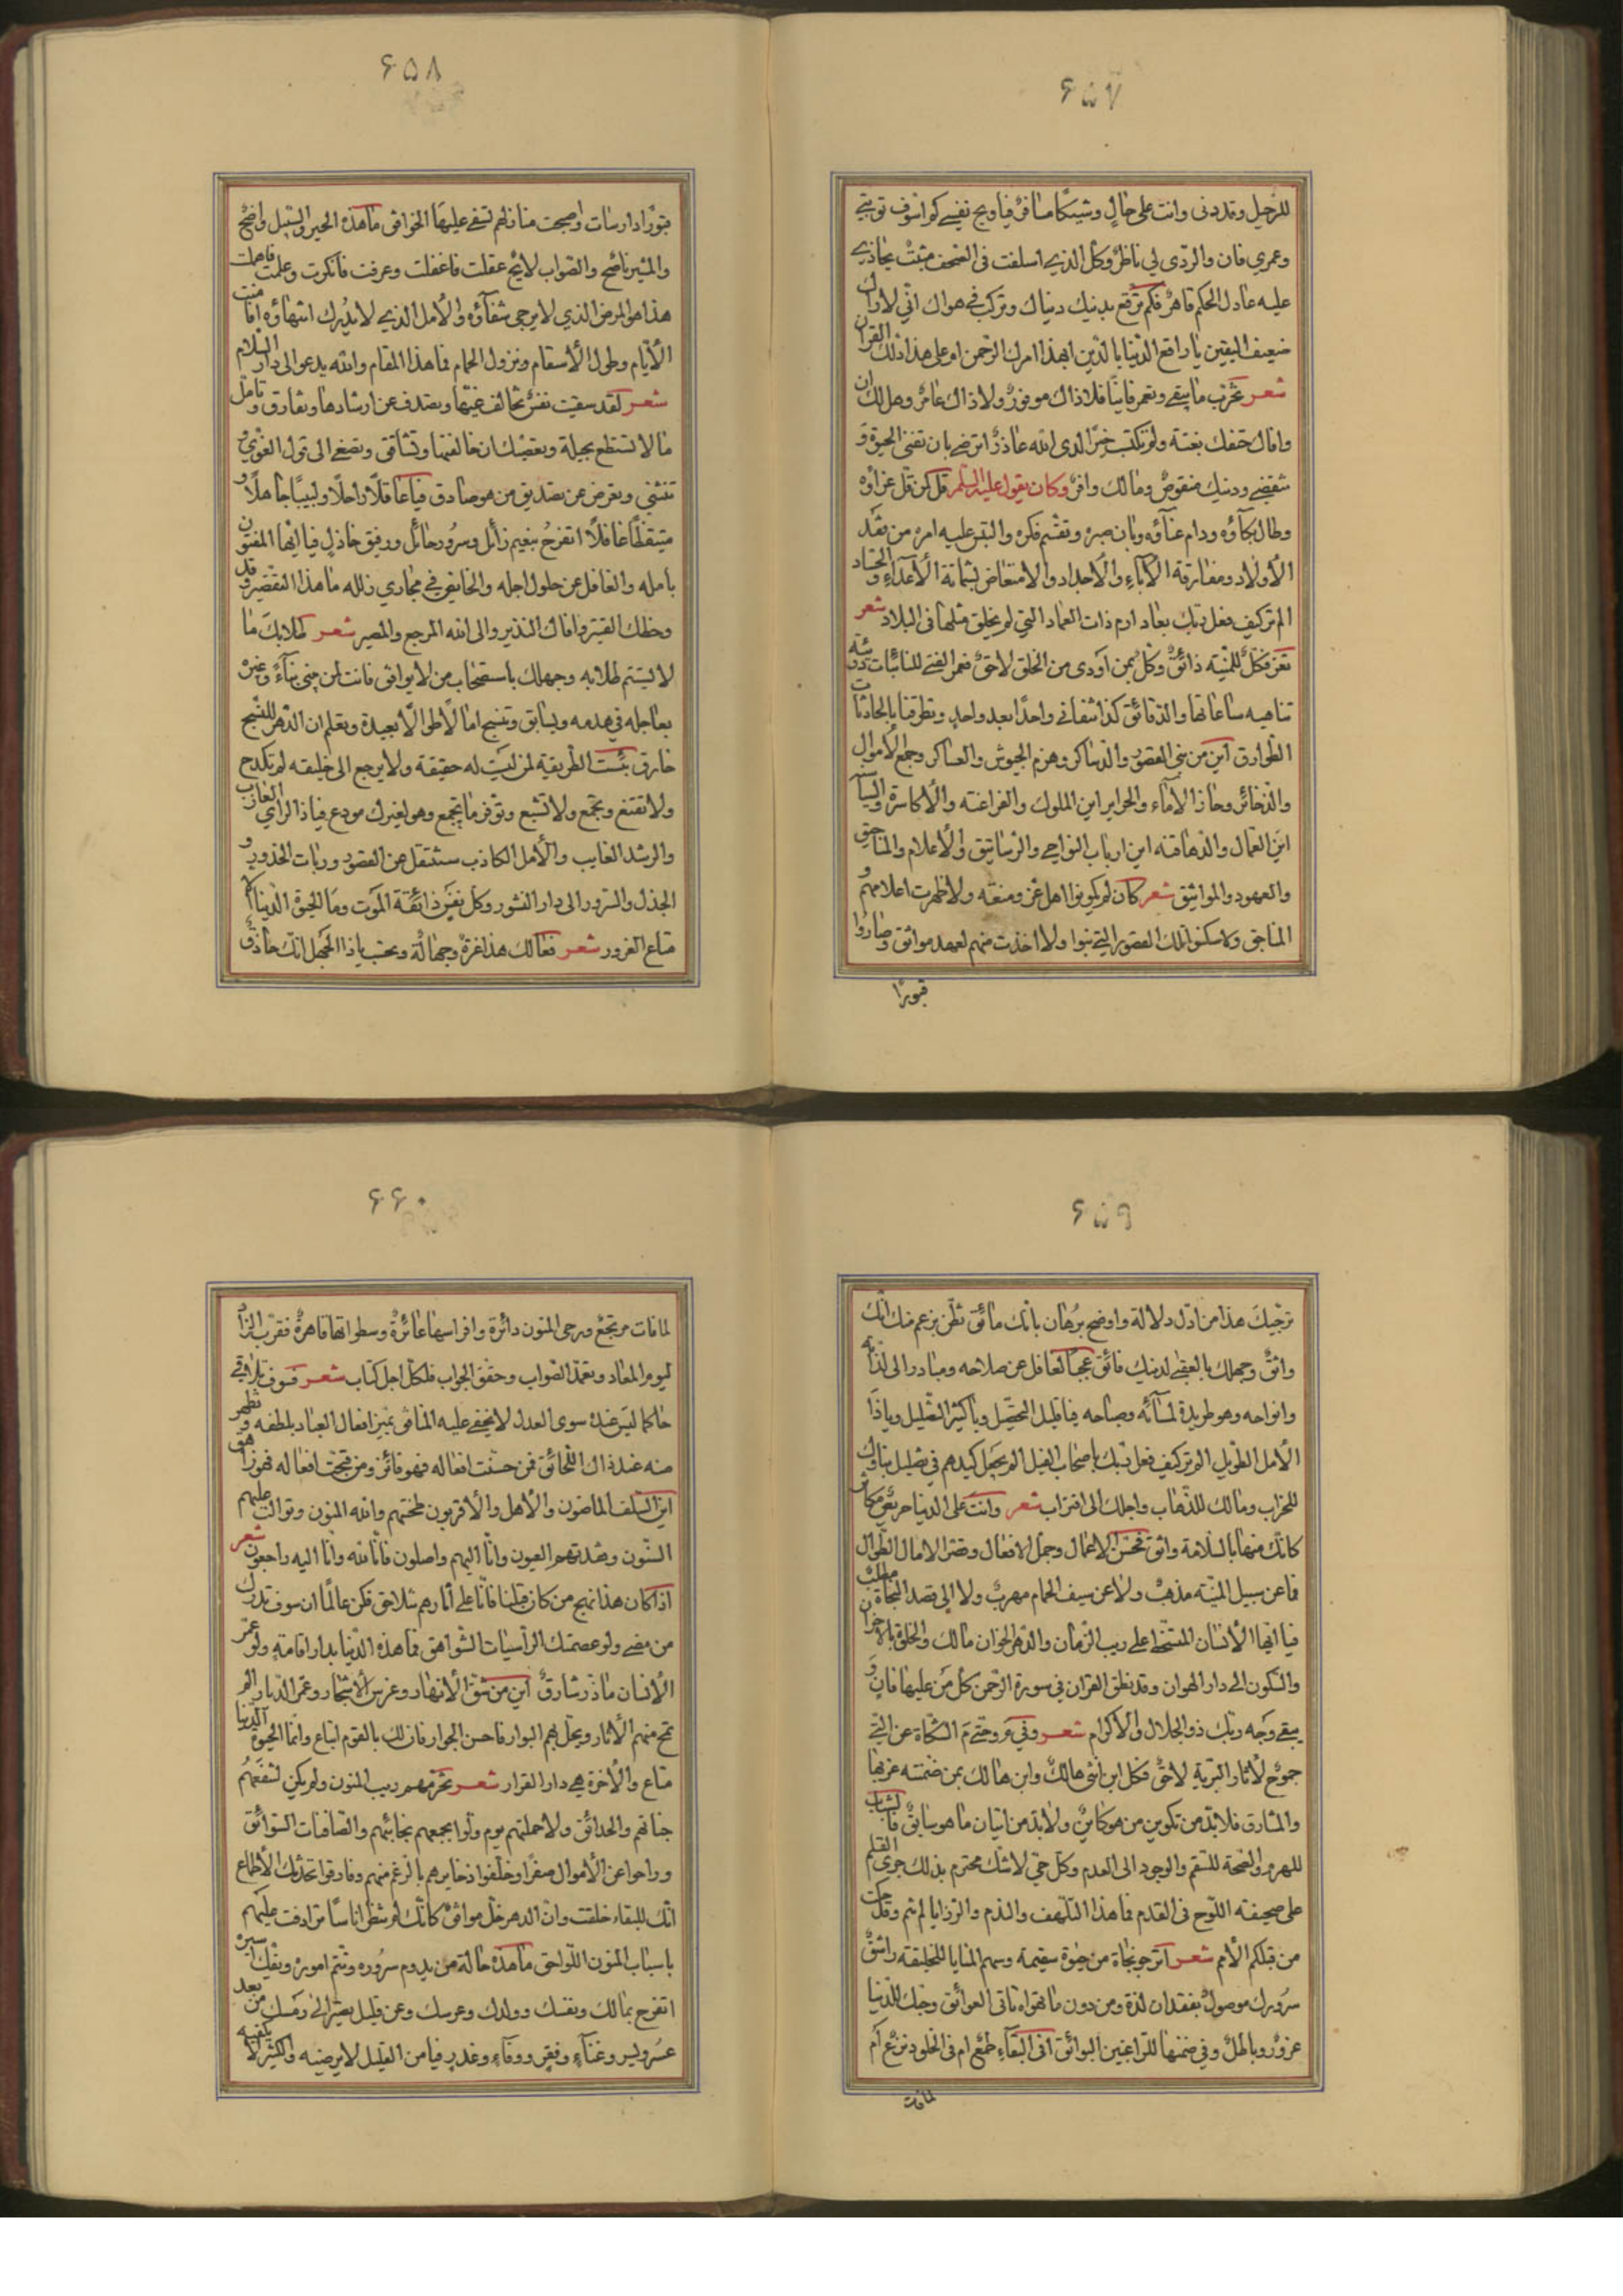 ۶۵۷
للرحيل وقد دنى وانت على حال وشيكا مسافر فيا ويح نفسي كم اسوف توبتي
وعمري فان والردى لي ناظر وكل الذي اسلفت في الصحف مثبت يجازي
عليه عادل الحكم قاهر فكم ترقع بدينك دنياك وتركب في هواك اني لاراك
ضعيف اليقين يا راقع الدنيا بالدين ابهذا امرك الرحمن ام على هذا دلك القران
شعر تخرب ما يبقى وتعمر فانيا فلا ذاك موفور ولا ذاك عامر وهل لك ان
وافاك حتفك بغتة ولم تكتسب خيرا لدى الله عاذر اترضى بان تفنى الحيوة و
تنقضي ودينك منقوص ومالك وافر وكان يقول عليه السلم قل كن قل عزاؤه
وطال بكاؤه ودام عناؤه وبان صبره وتقسم فكره والتبس عليه امره من فقد
الأولاد ومفارقة الأباء والأجداد والامتعاض بشماتة الأعداء والحساد
الم تر كيف فعل ربك بعاد ارم ذات العماد التي لم يخلق مثلها في البلاد شعر
تعز فكل للمنية ذائق وكل بمن اودى من الخلق لاحق فعمر الفتى للنائبات
تناهبه ساعاتها والدقائق كذا نتفانى واحدا بعد واحد وتطرقنا بالحادثات
الطوارق اين من بنى القصور والدساكر وهزم الجيوش والعساكر وجمع الأموال
والذخائر وحاز الأماء والحراير اين الملوك والفراعنة والأكاسرة والسياسة
اين العمال والدهاقنة اين ارباب النواحي والرساتيق والأعلام والمناجيق
والعهود والمواثيق شعر كان لم يكونوا اهل عز ومنعة ولا ظهرت اعلامهم و
المناجق ولا سكنوا تلك القصور التي بنوا ولا اخذت منهم لعهد مواثق وصاروا
قبورا
۶۵۸
قبورا دارسات واصبحت منازلهم تسفي عليها الخوافق ما هذه الحيرة والسبيل واضح
والمشير ناصح والصواب لائح عقلت فاغفلت وعرفت فانكرت وعلمت فاهملت
هذا هو المرض الذي لا يرجى شفاؤه والأمل الذي لا يدرك انتهاؤه افامنت
الأيام وطول الأسقام ونزول الحمام فما هذا المقام والله يدعو الى دار السلام
شعر لقد سقيت نفس تخالف غيها وتصدف عن ارشادها وتفارق وتامل
ما لا تستطع بحيلة وتعصيك ان خالفتها وتشاقق وتصغي الى قول الغوي و
تنثني وتعرض عن تصديق من هو صادق فيا عاقلا راحلا ولبيبا جاهلا و
متيقظا غافلا اتفرح بنعيم زائل وسرور حائل ورفيق خاذل فيا ايها المفتون
بامله والغافل عن حلول اجله والخائض في مجاري زلله ما هذا التقصير وقد
وخطك القتير وافاك النذير والى الله المرجع والمصير شعر طلابك ما
لا يستتم طلابه وجهلك باستصحاب من لا يوافق فانت لمن يبني بناء وغيره
يعاجله في هدمه ويسابق وتنسج امالا طوالا بعيدة وتعلم ان الدهر للنسج
خارق بئست الطريقة لمن ليست له حقيقة ولا يرجع الى خليقة لم تكدح
ولا تقنع وتجمع ولا تشبع وتوفر ما تجمع وهو لغيرك مودع فيا ذا الراي العازب
والرشد الغايب والأمل الكاذب ستنتقل عن القصور وربات الخدور و
الجذل والسرور الى دار النشور وكل نفس ذائقة الموت وما الحيوة الدنيا الا
متاع الغرور شعر فعالك هذا غرة وجهالة وتحسب يا ذا الجهل انك حاذق
۶۵۹
ترجيك هذا من ادل دلالة واوضح برهان بانك مائق تظن بزعم منك انك
واثق وجهلك بالعقبى لدينك فاتق عجبا لغافل عن صلاحه ومبادر الى لذاته
وافراحه وهو طريدة لمسائه وصباحه فيا قليل التحصيل ويا كثير التعليل ويا ذا
الأمل الطويل الم تر كيف فعل ربك باصحاب الفيل الم يجعل كيدهم في تضليل بناؤك
للخراب ومالك للذهاب واجلك الى اقتراب شعر وانت على الدنيا حريص مكاثر
كانك منها بالسلامة واثق فحسن الاعمال وجمل الافعال وقصر الامال الطوال
فما عن سبيل المنية مذهب ولا عن سيف الحمام مهرب ولا الى قصد النجاة مطلب
فيا ايها الأنسان المتسخط على ريب الزمان والدهر الخوان مالك والخلود
والسكون الى دار الهوان وقد نطق القران في سورة الرحمن كل من عليها فان و
يبقى وجه ربك ذو الجلال والأكرام شعر وفي م وحتى م الشكاة عن التي
جموح لأثار البرية لاحق فكل ابن انثى هالك وابن هالك بمن ضمنته غربها
والمشارق فلا بد من تكوين من هو كائن ولا بد من اتيان ما هو سابق فالشباب
للهرم والصحة للسقم والوجود الى العدم وكل حي لا شك محترم بذلك جرى القلم
على صحيفة اللوح في القدم فما هذا التلهف والندم والرزايا لم تنم وقد خلت
من قبلكم الأمم شعر اترجو نجاة من حيوة سقيمة وسهم المنايا للخليقة راشق
سرورك موصول بفقدان لذة ومن دون ما تهواه تاتي العوائق وحبك للدنيا
غرور وباطل وفي ضمنها للراغبين البوائق افي البقاء طمع ام في الخلود منزع ام
لمافات
۶۶۰
لما فات مرتجع ورحى المنون دائرة وافراسها عائرة وسطواتها قاهرة فقرب الزاد
ليوم المعاد وتعمد الصواب وحقق الجواب فلكل اجل كتاب شعر فسوف تلاقي
حاكما ليس عنده سوى العدل لا يخفى عليه المنافق يميز افعال العباد بلطفه وتظهر
منه عند ذاك الحقائق فمن حسنت افعاله فهو فائز ومن قبحت افعاله فهو زاهق
اين السلف الماضون والأهل والأقربون طحنتهم والله المنون وتوالت عليهم
السنون وفقدتهم العيون وانا اليهم واصلون فانا لله وانا اليه راجعون شعر
اذا كان هذا نهج من كان قبلنا فانا على اثارهم نتلاحق فكن عالما ان سوف تدرك
من مضى ولو عصمتك الراسيات الشواهق فما هذه الدنيا بدار اقامة ولو عمر
الأنسان ما ذر شارق اين من شق الأنهار وغرس الأشجار وعمر الديار الم
تمح منهم الأثار وتحل بهم البوار فاحسن الجوار فان لك بالقوم اتباع وانما الحيوة الدنيا
متاع والأخرة هي دار القرار شعر تخرمهم ريب المنون ولم يكن لتنفعهم
جناتهم والحدائق ولا حملتهم يوم ولوا بجمعهم نجائبهم والصافنات السوابق
وراحوا عن الأموال صفرا وخلفوا ذخايرهم بالرغم منهم وفارقوا تحدثك الأطماع
انك للبقاء خلقت وان الدهر خل موافق كانك لم تنظر اناسا ترادفت عليهم
باسباب المنون اللواحق ما هذه حالة من يدوم سروره وتتم اموره ويفك اسيره
اتفرح بمالك ونفسك وولدك وعرسك وعن قليل تصير الى رمسك من بعد
عسر ويسر وغناء وفقر ووفاء وغدر فيا من القليل لا يرضيه والكثير لا يكفيه